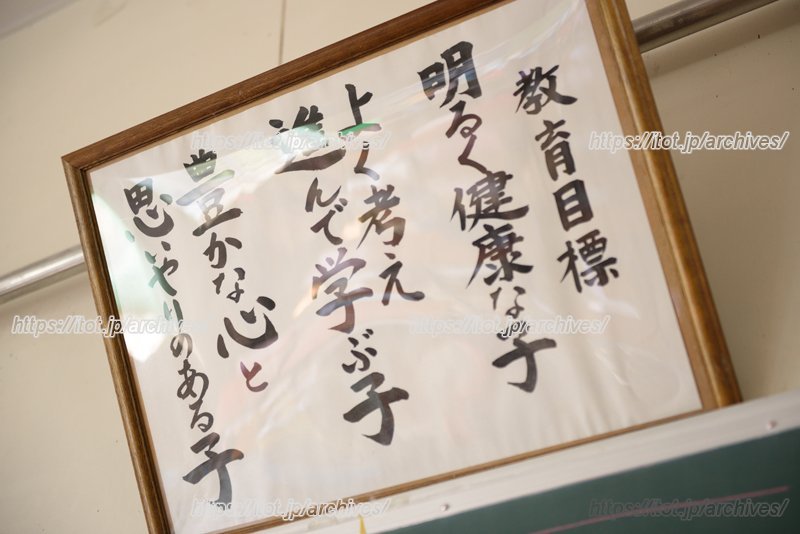 教育目標
明るく健康な子
よく考え
進んで学ぶ子
豊かな心と
思いやりのある子
https://itot.jp/archives/
https://itot.jp/archives/
https://itot.jp/archives/
https://itot.jp/archives/
https://itot.jp/archives/
https://itot.jp/archives/
https://itot.jp/archives/
https://itot.jp/archives/